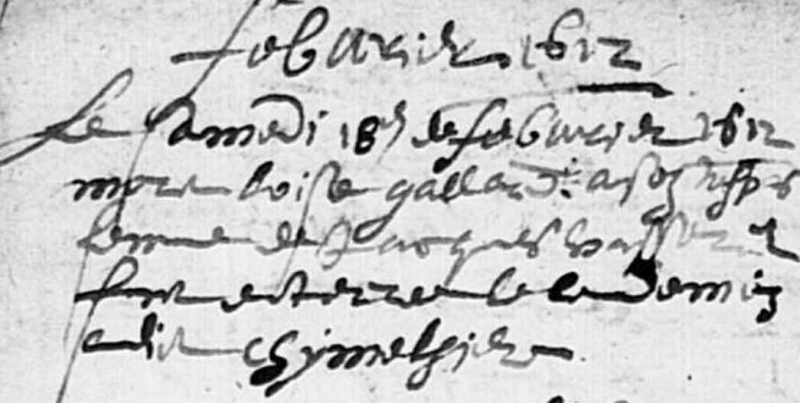 febvrier 1612
Le samedi 18e de febvrier 1612
mourut loise gallard
femme de Jacques
fut enterree le lendemin
audit chymetiere